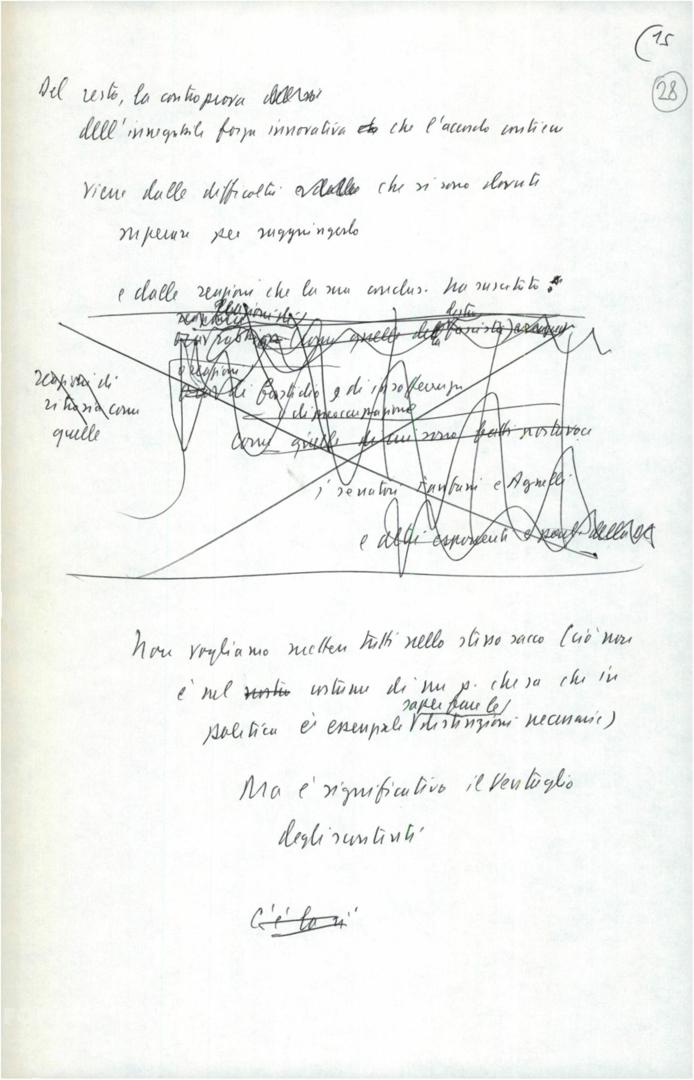 (15
28
Del resto, la controprova
dell'innegabile forza innovativa che l'accordo contiene
viene dalle difficoltà che si sono dovute
superare per raggiungerlo
e dalle reazioni che la sua conclus. ha suscitato:
reazioni di
come quelle della destra fascista
reazioni
di fastidio e di insofferenza
e di preoccupazione
reazioni di
come
quelle
come quelle di
i senatori Fanfani e Agnelli
e altri esponenti e della DC
Non vogliamo mettere tutti nello stesso sacco (ciò non
è nel nostro costume di un p. che sa che in
saper fare le
politica è essenziale distinzioni necessarie)
Ma è significativo il ventaglio
degli scontenti
C'è la